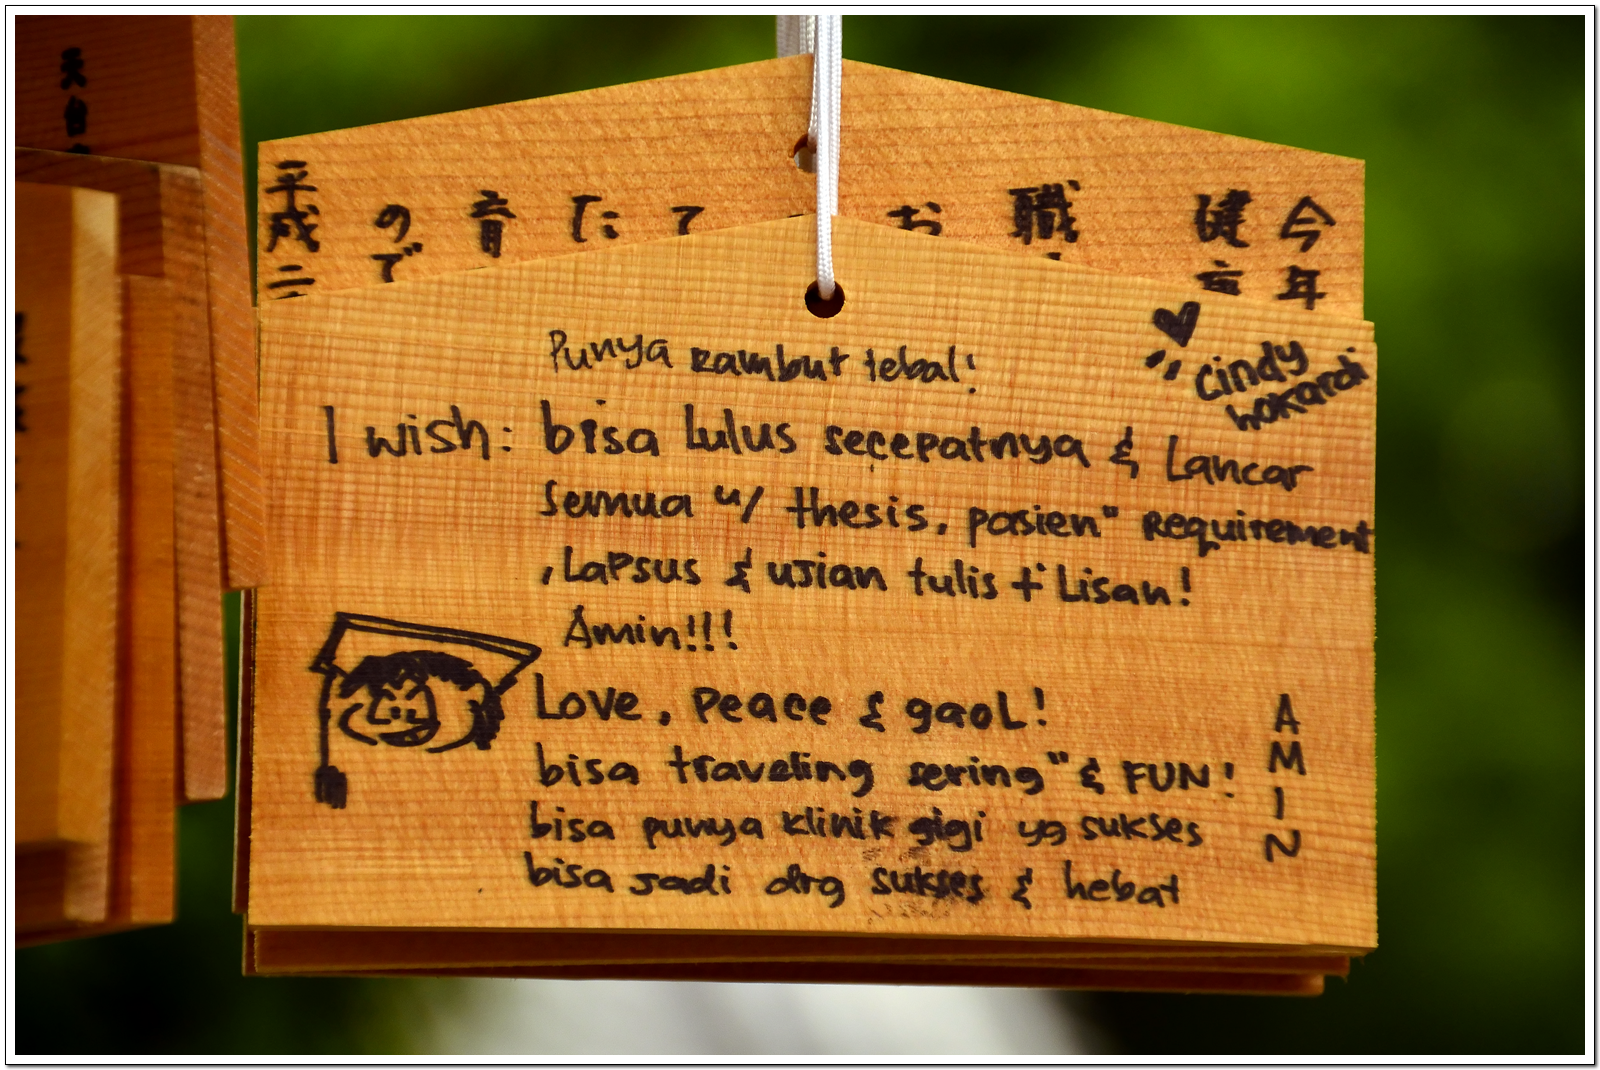 天台
平成二
の で
育
に
て
お
職
健
今年
Punya rambut tebal!
cindy
hokardi
I wish: bisa Lulus secepatnya & Lancar
semua u/ thesis, pasien" Requirement
, Lapsus & ujian tulis + Lisan!
Amin!!!
Love, peace & gaoL!
bisa traveling sering" & FUN!
bisa punya klinik gigi yg sukses
bisa jadi drg sukses & hebat
AMIN